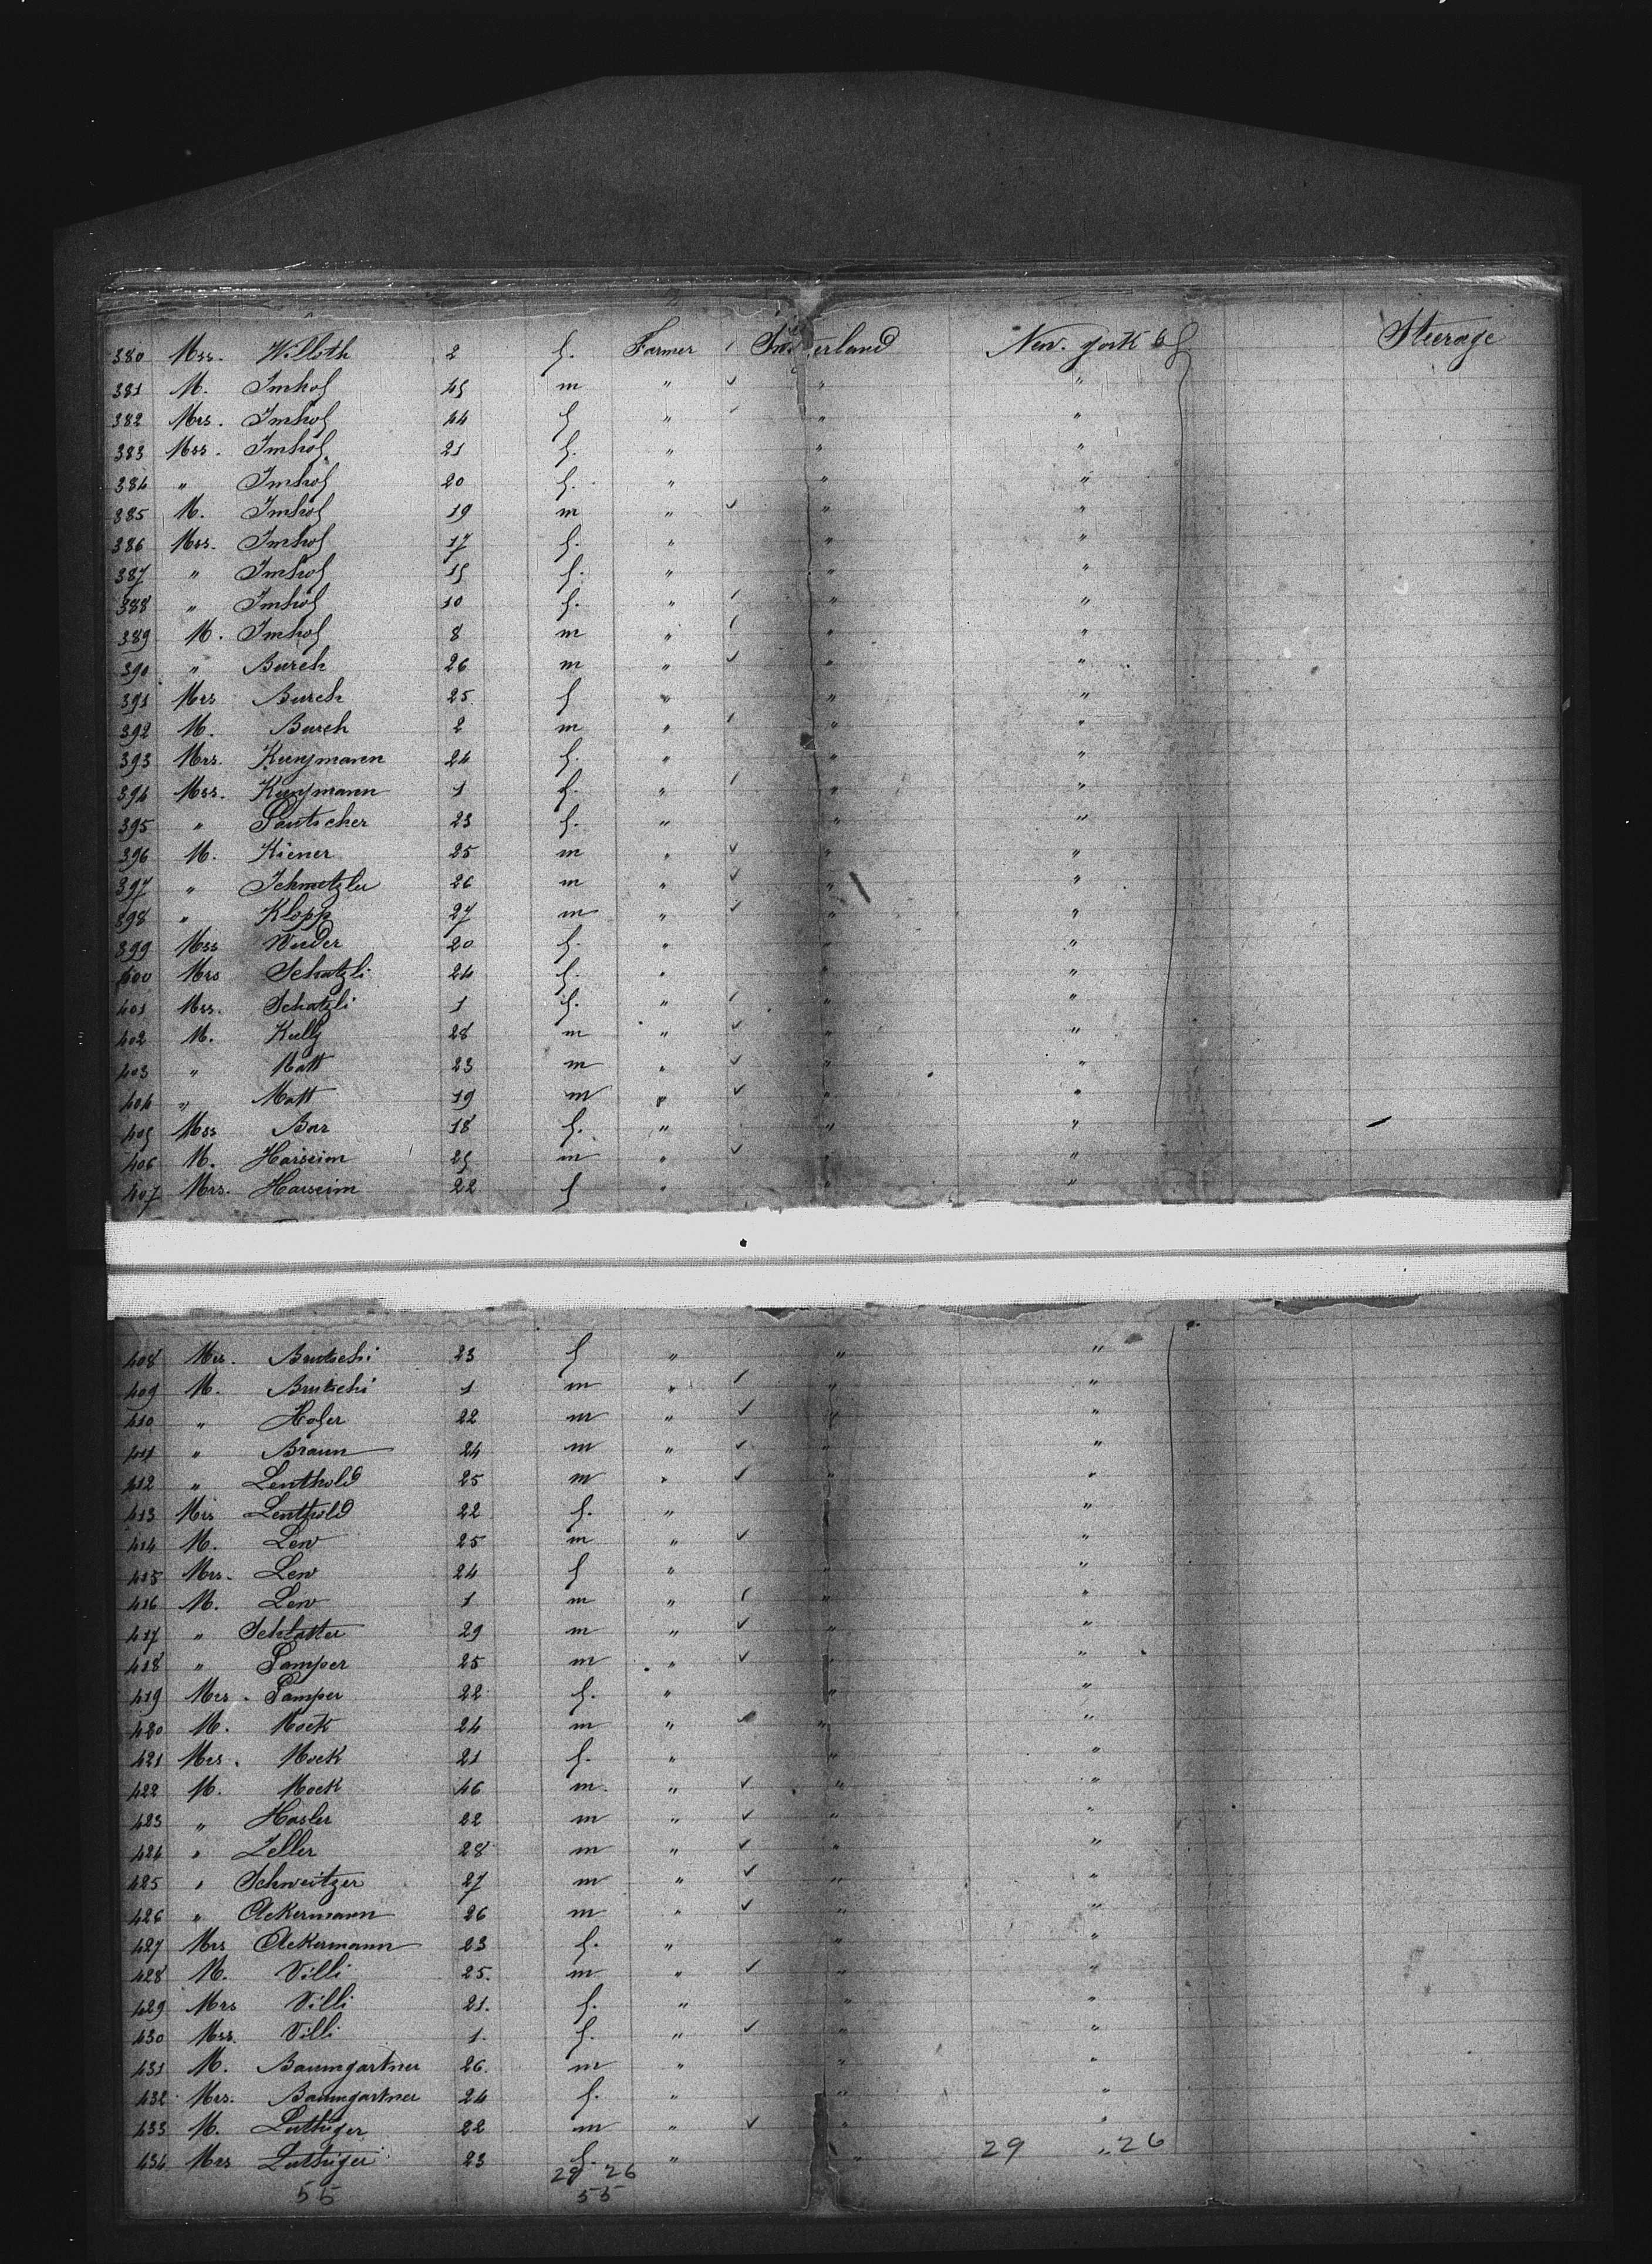 380 Mss. Willoth 2 f. Farmer erland New. york Steerage
381 M. Imhof 45 m " " "
382 Mrs. Imhof 44 f " " "
383 Mss. Imhof 21 f. " " "
384 " Imhof 20 f. " " "
385 M. Imhof 19 m " " "
386 Mss. Imhof 17 f. " " "
387 " Imhof 15 f. " " "
388 " Imhof 10 f. " " "
389 M. Imhof 8 m " " "
390 " Burch 26 m " " "
391 Mrs Burch 25 f " " "
392 M. Burch 2 m " " "
393 Mrs. Kunzmann 24 f. " " "
394 Mss. Kunzmann 1 f. " " "
395 " 23 f. " " "
396 M. Kiener 25 m " " "
397 " Schmetzler 26 m " " "
398 " Klopp 27 m " " "
399 Mss Wieder 20 f. " " "
400 Mrs Schatzli 24 f. " " "
401 Mss. Schatzli 1 f. " " "
402 M. 28 m " " "
403 " Matt 23 m " " "
404 " Matt 19 m " " "
405 Mss Bar 18 f. " " "
406 M. Harseim 25 m " " "
407 Mrs. Harseim 22 f " " "
408 Mrs. Brutschi 23 f " " "
409 M. Brutschi 1 m " " "
410 " Hofer 22 m " " "
411 " Braun 24 m " " "
412 " Leuthold 25 m " " "
413 Mrs Leuthold 22 f. " "
414 M. Lew 25 m " "
415 Mrs. Lew 24 f " " "
416 M. Lew 1 m " " "
417 " Schlatter 29 m " " "
418 " 25 m " " "
419 Mrs. 22 f. " " "
420 M. Mock 24 m " " "
421 Mrs. Mock 21 f. " " "
422 M. Mock 46 m " " "
423 " Hasler 22 m " " "
424 " Zeller 28 m " " "
425 " Schweitzer 27 m " " "
426 " Ackermann 26 m " " "
427 Mrs Ackermann 23 f. " " "
428 M. Villi 25. m " " "
429 Mrs Villi 21. f. " " "
430 Mss. Villi 1. f. " " "
431 M. Baumgartner 26. m " " "
432 Mrs. Baumgartner 24 f. " " "
433 M. Luthiger 22 m " " "
434 Mrs Luthiger 23 f. " " 29 " 26
29 26
55 55